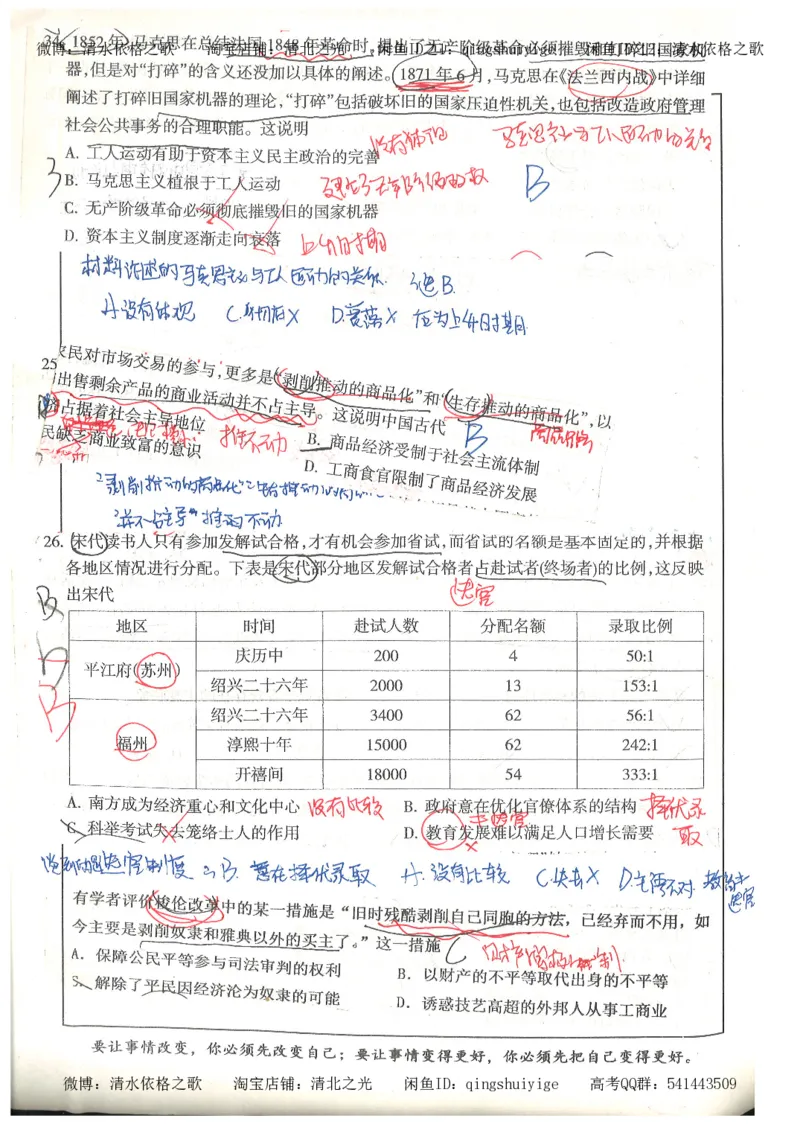 34. 1852年,马克思在总结法国1848年革命时,提出了无产阶级革命必须摧毁和打碎旧国家机
微博：清水依格之歌 淘宝店铺：清北之光 闲鱼ID：qingshuiyige 闲鱼ID：清水依格之歌
器,但是对“打碎”的含义还没加以具体的阐述。1871年6月,马克思在《法兰西内战》中详细
阐述了打碎旧国家机器的理论,“打碎”包括破坏旧的国家压迫性机关,也包括改造政府管理
社会公共事务的合理职能。这说明
A. 工人运动有助于资本主义民主政治的完善 没有体现
B. 马克思主义植根于工人运动
B
C. 无产阶级革命必须彻底摧毁旧的国家机器
D. 资本主义制度逐渐走向衰落 上升时期
材料论述的马克思主义与工人运动的关系 选B
A.没有体现 C.彻底X D.衰落X 应为上升时期
25
农民对市场交易的参与,更多是“剥削推动的商品化”和“生存推动的商品化”,以
出售剩余产品的商业活动并不占主导。这说明中国古代
占据着社会主导地位 B. 商品经济受制于社会主流体制
民缺乏商业致富的意识 推不动 B
D. 工商食官限制了商品经济发展
“并不占主导”推不动
26. 宋代读书人只有参加发解试合格,才有机会参加省试,而省试的名额是基本固定的,并根据
各地区情况进行分配。下表是宋代部分地区发解试合格者占赴试者(终场者)的比例,这反映
出宋代 选官
地区 时间 赴试人数 分配名额 录取比例
平江府(苏州) 庆历中 200 4 50:1
绍兴二十六年 2000 13 153:1
福州 绍兴二十六年 3400 62 56:1
淳熙十年 15000 62 242:1
开禧间 18000 54 333:1
A. 南方成为经济重心和文化中心 没有比较 B. 政府意在优化官僚体系的结构 择优录取
C. 科举考试失去笼络士人的作用 D. 教育发展难以满足人口增长需要
选官制度 B 意在择优录取 A.没有比较 C.失去X D.主语不对
有学者评价梭伦改革中的某一措施是“旧时残酷剥削自己同胞的方法，已经弃而不用，如
今主要是剥削奴隶和雅典以外的买主了。”这一措施 C
A. 保障公民平等参与司法审判的权利 B. 以财产的不平等取代出身的不平等
C. 解除了平民因经济沦为奴隶的可能 D. 诱惑技艺高超的外邦人从事工商业
要让事情改变，你必须先改变自己；要让事情变得更好，你必须先把自己变得更好。
微博：清水依格之歌 淘宝店铺：清北之光 闲鱼ID：qingshuiyige 高考QQ群：541443509